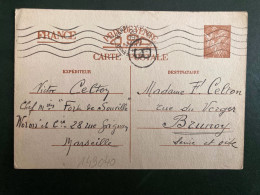 FRANCE
CARTE POSTALE
EXPÉDITEUR
DESTINATAIRE
Victor Celton
Chef Mn "Fort de Souville"
Worms et Cie 28 rue Grignan
Marseille
Madame F. Celton
rue du Verger
Brunoy
Seine et Oise